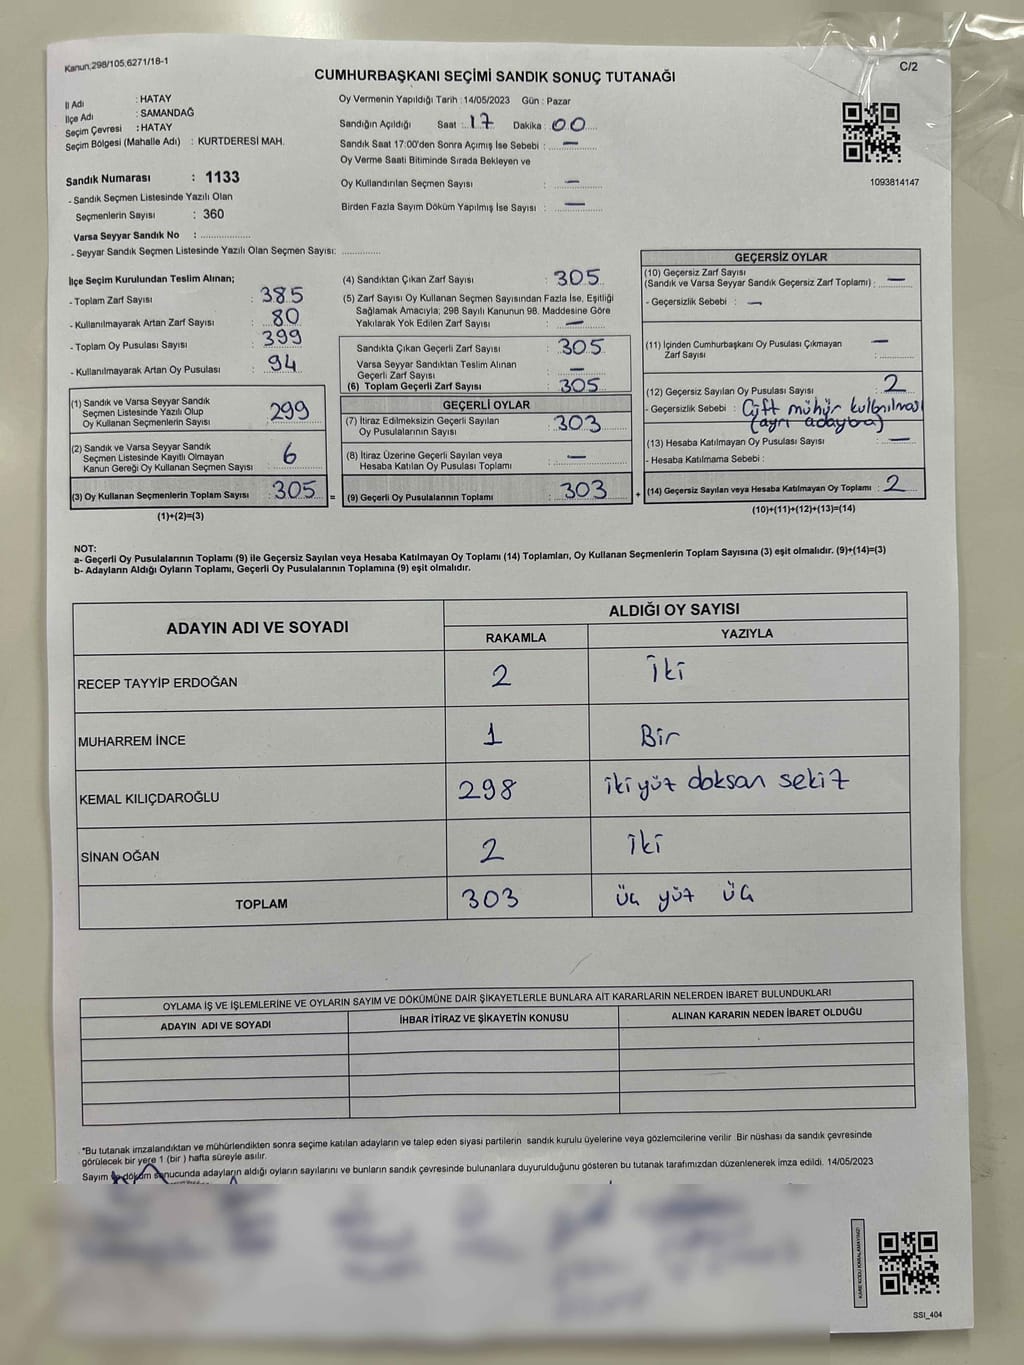 Kanun;298/105;6271/18-1
C/2
CUMHURBAŞKANI SEÇİMİ SANDIK SONUÇ TUTANAĞI
İl Adı : HATAY
İlçe Adı : SAMANDAĞ
Seçim Çevresi : HATAY
Seçim Bölgesi (Mahalle Adı) : KURTDERESİ MAH.
Sandık Numarası : 1133
- Sandık Seçmen Listesinde Yazılı Olan
Seçmenlerin Sayısı : 360
Varsa Seyyar Sandık No : ...................
- Seyyar Sandık Seçmen Listesinde Yazılı Olan Seçmen Sayısı: ..............
Oy Vermenin Yapıldığı Tarih :14/05/2023 Gün : Pazar
Sandığın Açıldığı Saat :. 17 Dakika : 00
Sandık Saat 17:00'den Sonra Açımış İse Sebebi : —
Oy Verme Saati Bitiminde Sırada Bekleyen ve
Oy Kullandırılan Seçmen Sayısı : —
Birden Fazla Sayım Döküm Yapılmış İse Sayısı : —
1093814147
İlçe Seçim Kurulundan Teslim Alınan;
- Toplam Zarf Sayısı : 385
- Kullanılmayarak Artan Zarf Sayısı : 80
- Toplam Oy Pusulası Sayısı : 399
- Kullanılmayarak Artan Oy Pusulası : 94
(1) Sandık ve Varsa Seyyar Sandık
Seçmen Listesinde Yazılı Olup
Oy Kullanan Seçmenlerin Sayısı : 299
(2) Sandık ve Varsa Seyyar Sandık
Seçmen Listesinde Kayıtlı Olmayan
Kanun Gereği Oy Kullanan Seçmen Sayısı : 6
(3) Oy Kullanan Seçmenlerin Toplam Sayısı : 305 =
(1)+(2)=(3)
(4) Sandıktan Çıkan Zarf Sayısı : 305
(5) Zarf Sayısı Oy Kullanan Seçmen Sayısından Fazla İse, Eşitliği
Sağlamak Amacıyla; 298 Sayılı Kanunun 98. Maddesine Göre
Yakılarak Yok Edilen Zarf Sayısı : —
Sandıkta Çıkan Geçerli Zarf Sayısı : 305
Varsa Seyyar Sandıktan Teslim Alınan
Geçerli Zarf Sayısı : —
(6) Toplam Geçerli Zarf Sayısı : 305
GEÇERLİ OYLAR
(7) İtiraz Edilmeksizin Geçerli Sayılan
Oy Pusulalarının Sayısı : 303
(8) İtiraz Üzerine Geçerli Sayılan veya
Hesaba Katılan Oy Pusulası Toplamı : —
(9) Geçerli Oy Pusulalarının Toplamı : 303 +
GEÇERSİZ OYLAR
(10) Geçersiz Zarf Sayısı
(Sandık ve Varsa Seyyar Sandık Geçersiz Zarf Toplamı) : —
- Geçersizlik Sebebi : —
(11) İçinden Cumhurbaşkanı Oy Pusulası Çıkmayan —
Zarf Sayısı : ............
(12) Geçersiz Sayılan Oy Pusulası Sayısı : 2
- Geçersizlik Sebebi : Çift mühür kullanılması
(ayrı adayba)
(13) Hesaba Katılmayan Oy Pusulası Sayısı : —
- Hesaba Katılmama Sebebi :
(14) Geçersiz Sayılan veya Hesaba Katılmayan Oy Toplamı : 2
(10)+(11)+(12)+(13)=(14)
NOT:
a- Geçerli Oy Pusulalarının Toplamı (9) ile Geçersiz Sayılan veya Hesaba Katılmayan Oy Toplamı (14) Toplamları, Oy Kullanan Seçmenlerin Toplam Sayısına (3) eşit olmalıdır. (9)+(14)=(3)
b- Adayların Aldığı Oyların Toplamı, Geçerli Oy Pusulalarının Toplamına (9) eşit olmalıdır.
ADAYIN ADI VE SOYADI ALDIĞI OY SAYISI
RAKAMLA YAZIYLA
RECEP TAYYİP ERDOĞAN 2 İki
MUHARREM İNCE 1 Bir
KEMAL KILIÇDAROĞLU 298 iki yüz doksan sekiz
SİNAN OĞAN 2 İki
TOPLAM 303 üç yüz üç
OYLAMA İŞ VE İŞLEMLERİNE VE OYLARIN SAYIM VE DÖKÜMÜNE DAİR ŞİKAYETLERLE BUNLARA AİT KARARLARIN NELERDEN İBARET BULUNDUKLARI
ADAYIN ADI VE SOYADI İHBAR İTİRAZ VE ŞİKAYETİN KONUSU ALINAN KARARIN NEDEN İBARET OLDUĞU
*Bu tutanak imzalandıktan ve mühürlendikten sonra seçime katılan adayların ve talep eden siyasi partilerin sandık kurulu üyelerine veya gözlemcilerine verilir Bir nüshası da sandık çevresinde
görülecek bir yere 1 (bir ) hafta süreyle asılır.
Sayım ve döküm sonucunda adayların aldığı oyların sayılarını ve bunların sandık çevresinde bulunanlara duyurulduğunu gösteren bu tutanak tarafımızdan düzenlenerek imza edildi. 14/05/2023
KARE KODU KARALAMAYINIZ!
SSI_404